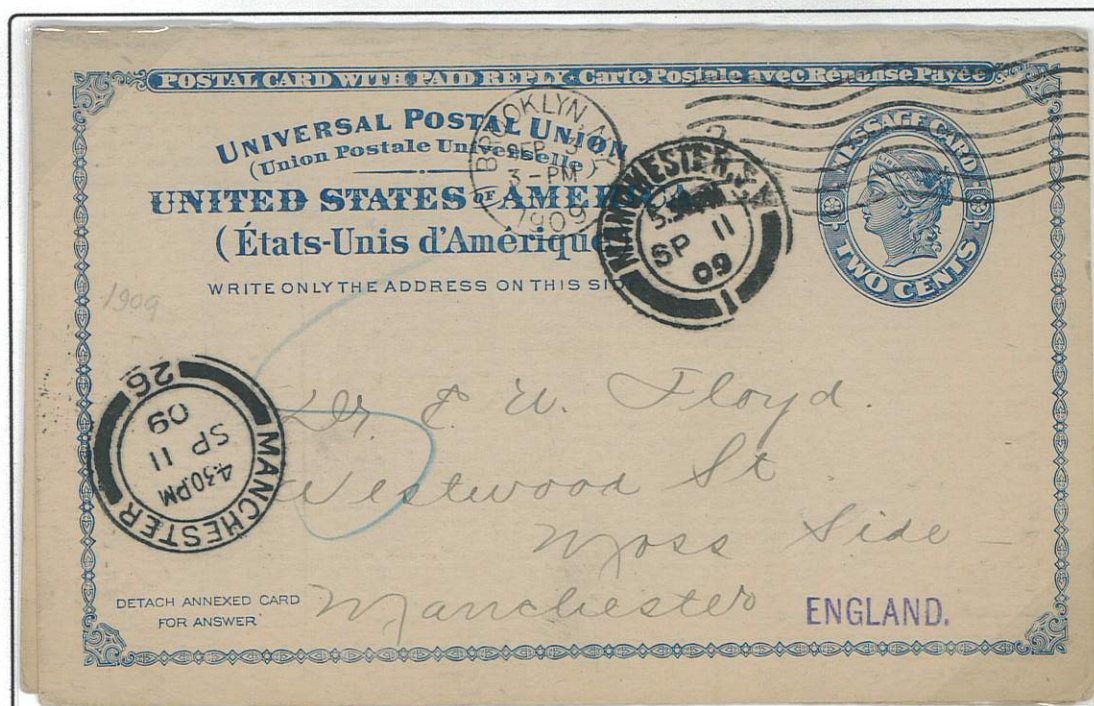 POSTAL CARD WITH PAID REPLY - Carte Postale avec Réponse Payée
UNIVERSAL POSTAL UNION
(Union Postale Universelle)
UNITED STATES OF AMERICA
(États-Unis d'Amérique
WRITE ONLY THE ADDRESS ON THIS SID
MESSAGE CARD
TWO CENTS
BROOKLYN N.Y.
SEP 3
3-PM
1909
MANCHESTER, S.
SP 11
09
1
1909
26
MANCHESTER
4.30 PM
SP 11
09
5
Dr. E W. Floyd.
Westwood St
Moss Side
Manchester
ENGLAND.
DETACH ANNEXED CARD
FOR ANSWER